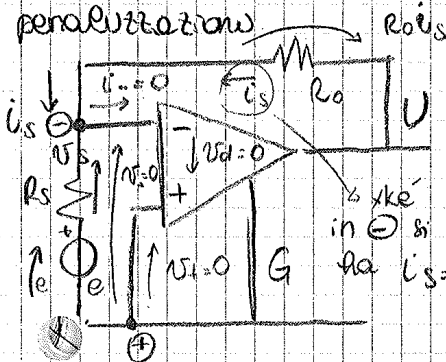 penalizzazione
R₀is
i₋=0
is
R₀
U
is
⊖
vs
−
vd=0
v₋=0
Rs
+
xké
in ⊖ si
ha is=
v₊=0
G
e
e
+
⊕